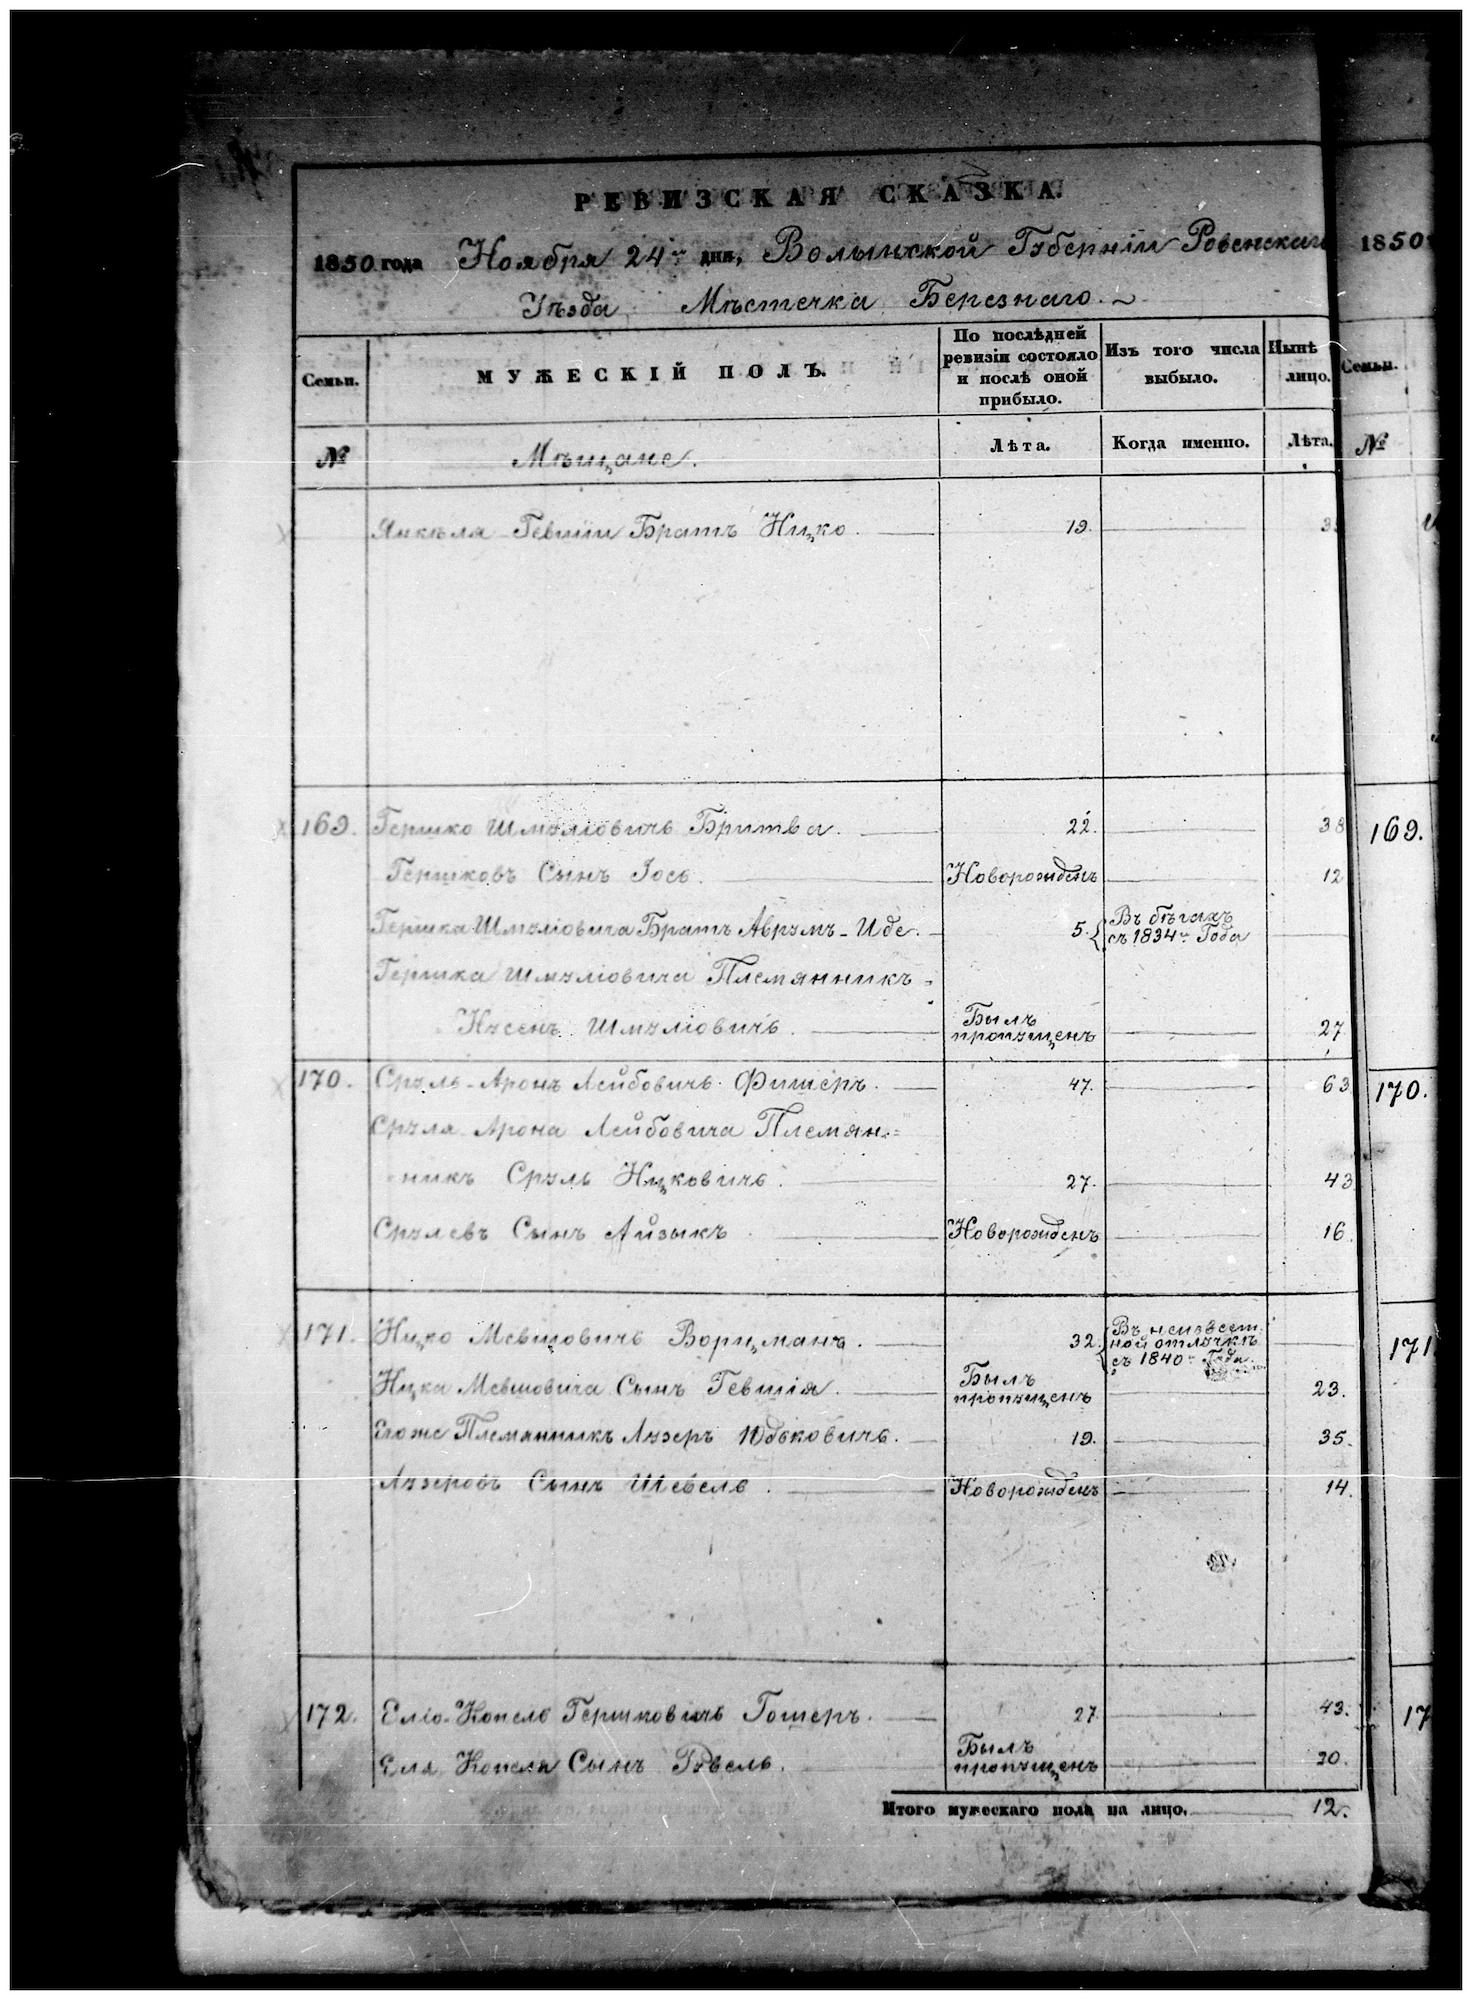 РЕВИЗСКАЯ СКАЗКА.
1850 года Ноября 24го дня, Волынской Губерніи Ровенскаго
Уѣзда Мѣстечка Березнаго.
Семьи.
МУЖЕСКІЙ ПОЛЪ.
По послѣдней
ревизіи состояло
и послѣ оной
прибыло.
Изъ того числа
выбыло.
Нынѣ
лицо.
№ Мѣщане. Лѣта. Когда именно. Лѣта.
Янкеля Гевшіи Братъ Ицко. 19.
169. Гершко Шмуліовичъ Бритва. 22. 38
Гершковъ Сынъ Іось. Новорожденъ 12
Гершка Шмуліовича Братъ Аврумъ-Иде. 5. Въ бѣгахъ
съ 1834го Года
Гершка Шмуліовича Племянникъ
Нусенъ Шмуліовичъ. Былъ
пропущенъ 27
170. Сруль-Аронъ Лейбовичъ Фишеръ. 47. 63
Сруля Арона Лейбовича Племян-
никъ Сруль Ицковичъ. 27. 43
Срулевъ Сынъ Айзыкъ Новорожденъ 16.
171. Ицко Мевшовичъ Ворцманъ. 32. Въ неизвест
ной отлучкѣ
съ 1840го Года
Ицка Мевшовича Сынъ Гевшія. Былъ
пропущенъ 23.
Егоже Племянникъ Лузеръ Юдковичъ. 19. 35.
Лузеровъ Сынъ Шевель. Новорожденъ 14.
172. Еліо-Копель Гершковичъ Гошеръ. 27. 43.
Еля Копеля Сынъ Рувель. Былъ
пропущенъ 20.
Итого мужескаго пола на лицо. 12.
1850
Семьи.
№
169.
170.
171
17